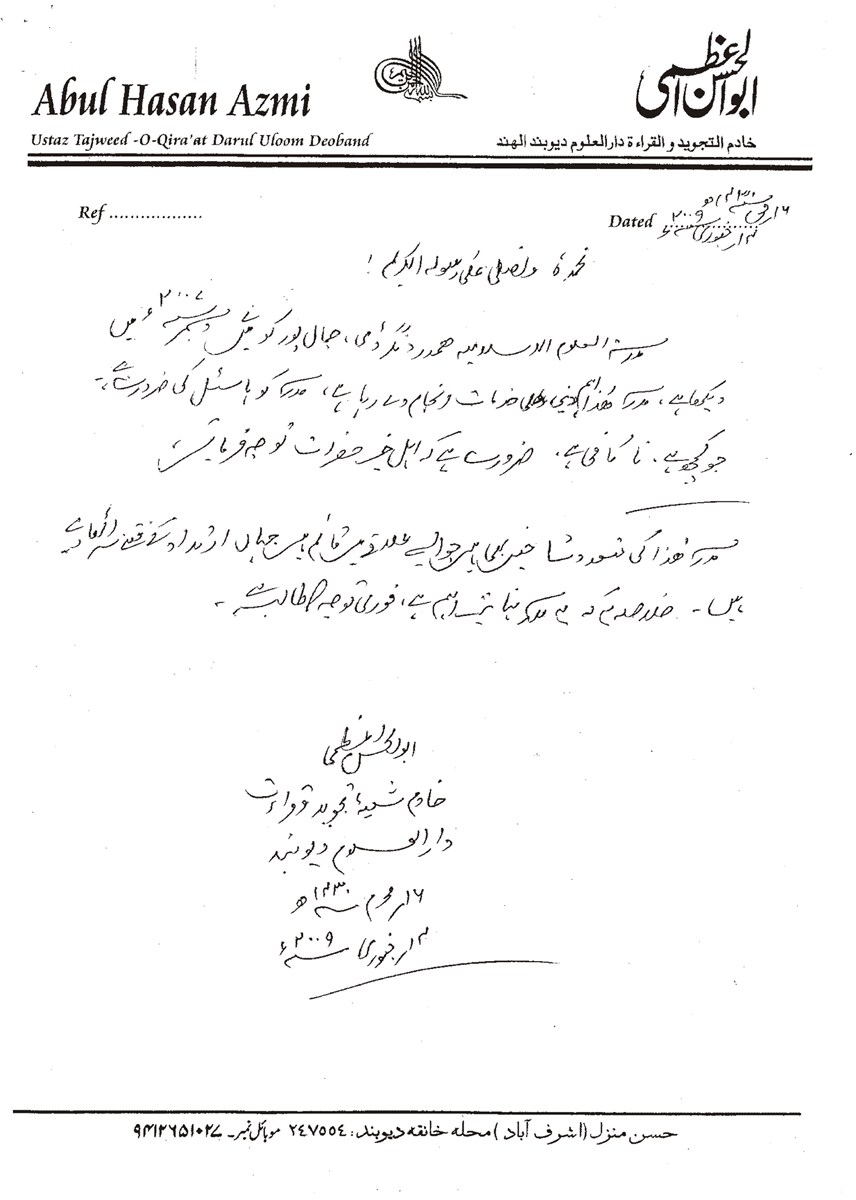 ابوالحسن اعظمی
Abul Hasan Azmi
Ustaz Tajweed -O-Qira'at Darul Uloom Deoband
خادم التجويد و القراءة دارالعلوم ديوبند الهند
Ref ..................
Dated ۱۶ر محرم سنہ ۱۴۳۰ھ
۱۴ر جنوری سنہ ۲۰۰۹ء
نحمدہ و نصلی علی رسولہ الکریم !
مدرسۃ العلوم الاسلامیہ ہمدرد نگر ڈی، جمال پور کو میں نے دسمبر سنہ ۲۰۰۷ء میں
دیکھا ہے، مدرسہ ھٰذا اہم دینی علمی خدمات انجام دے رہا ہے، مدرسہ کو ہاسٹل کی ضرورت ہے۔
جو کچھ ہے، نا کافی ہے، ضرورت ہے کہ اہل خیر حضرات توجہ فرمائیں
مدرسہ ھٰذا کی متعدد شاخیں بھی ہیں جو ایسے علاقے میں قائم ہیں جہاں ارتداد کے فتنے
ہیں۔ خلاصہ یہ کہ یہ مدرسہ نہایت اہم ہے، فوری توجہ کا طالب ہے۔
ابوالحسن اعظمی
خادم شعبۂ تجوید و قراءت
دارالعلوم دیوبند
۱۶ر محرم سنہ ۱۴۳۰ھ
۱۴ر جنوری سنہ ۲۰۰۹ء
حسن منزل (اشرف آباد) محلہ خانقاہ دیوبند: ۲۴۷۵۵۴ موبائل نمبر۔ ۹۴۱۲۶۵۱۰۲۷